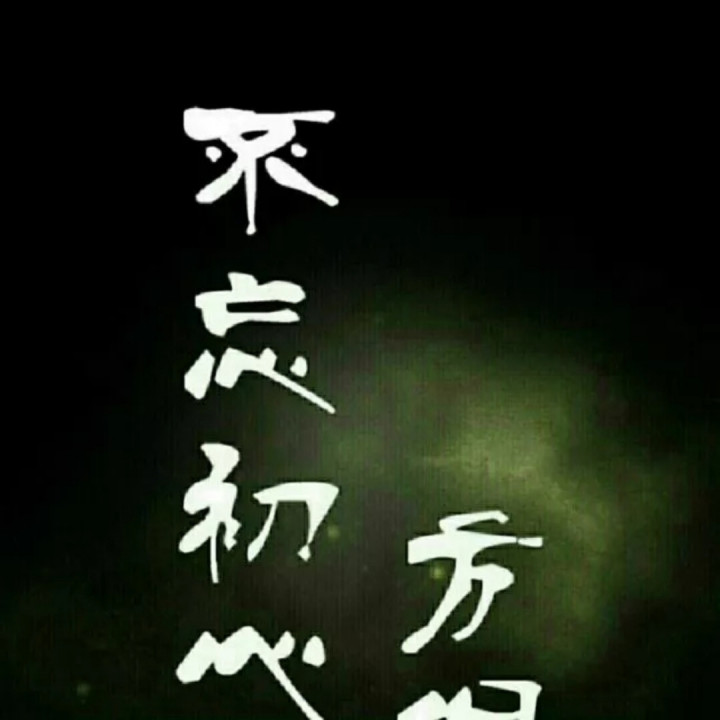 不忘初心
方